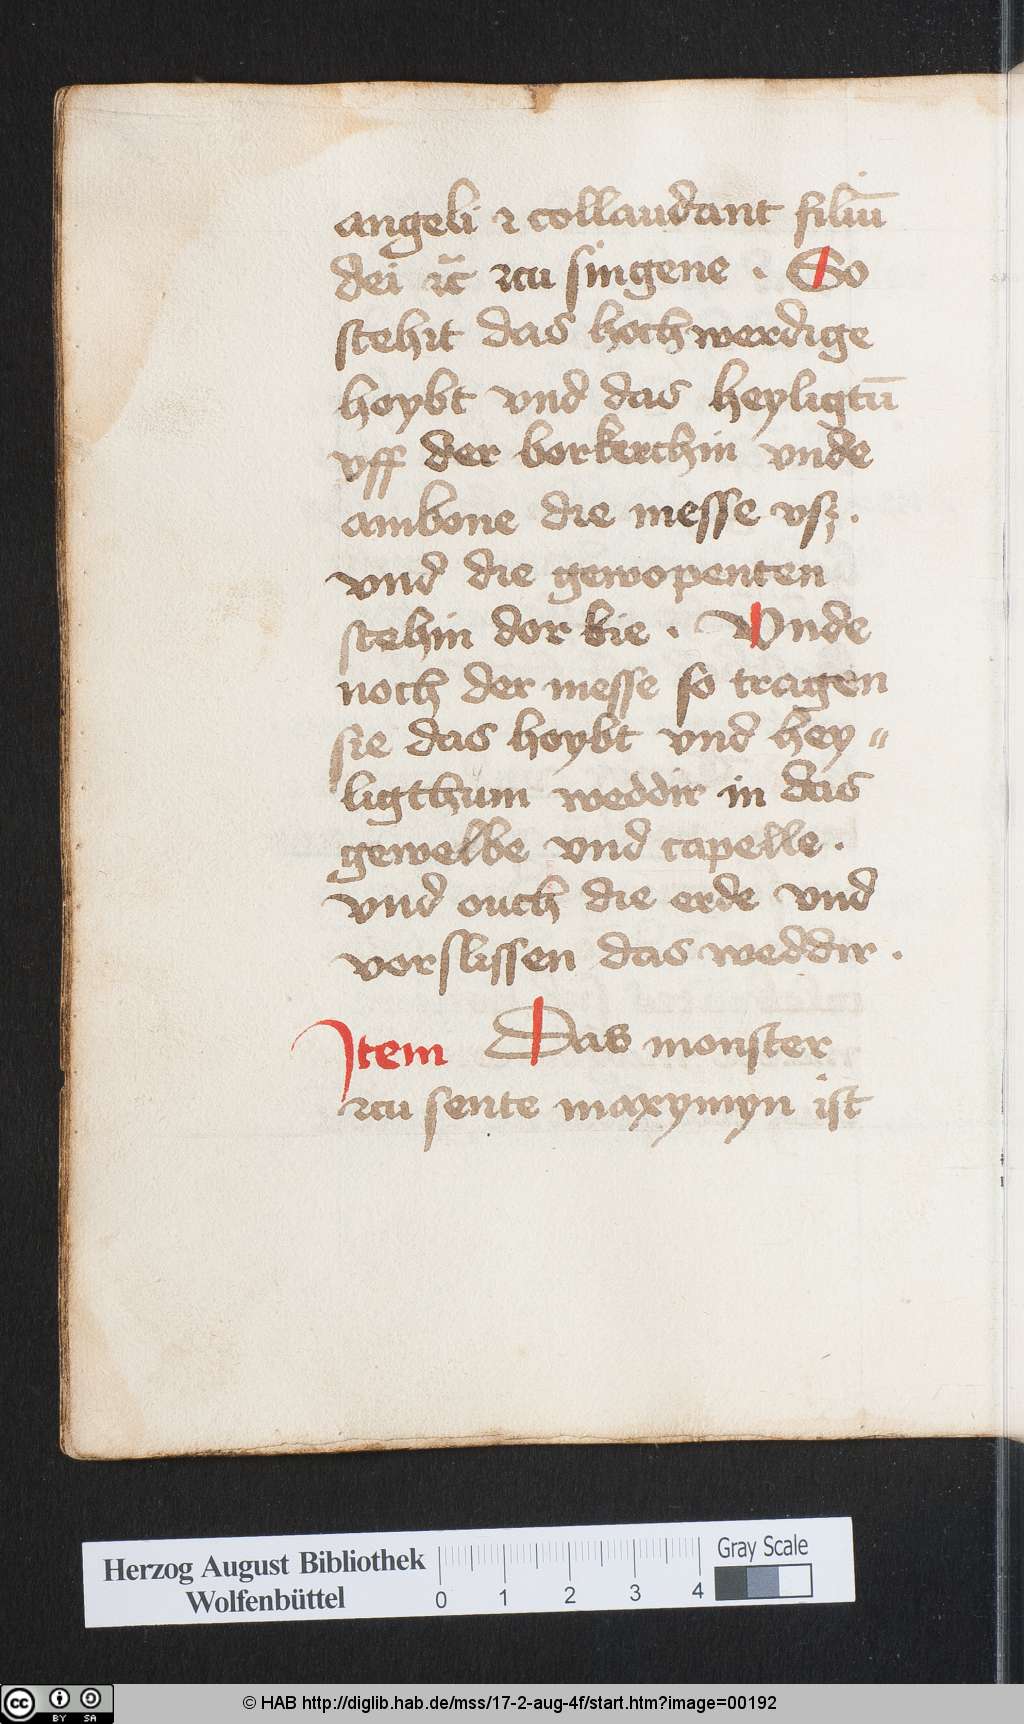 angeli ⁊ collaudant filiū
dei ⁊c̄ zcu singene . So
stehit das hochwerdige
hoybt vnd das heyligtū
vff der borkerchin vnde
ambone die messe vſz .
vnd die gewopenten
stehin dor bie . Vnde
noch der messe so tragen
sie das hoybt vnd hey〃
ligthum weddir in das
gewelbe vnd capelle .
vnd ouch die erde vnd
vorslissen das weddir .
Item Das monster
zcu sente maxymyn ist
Herzog August Bibliothek
Wolfenbüttel
0 1 2 3 4
Gray Scale
cc BY SA
© HAB http://diglib.hab.de/mss/17-2-aug-4f/start.htm?image=00192